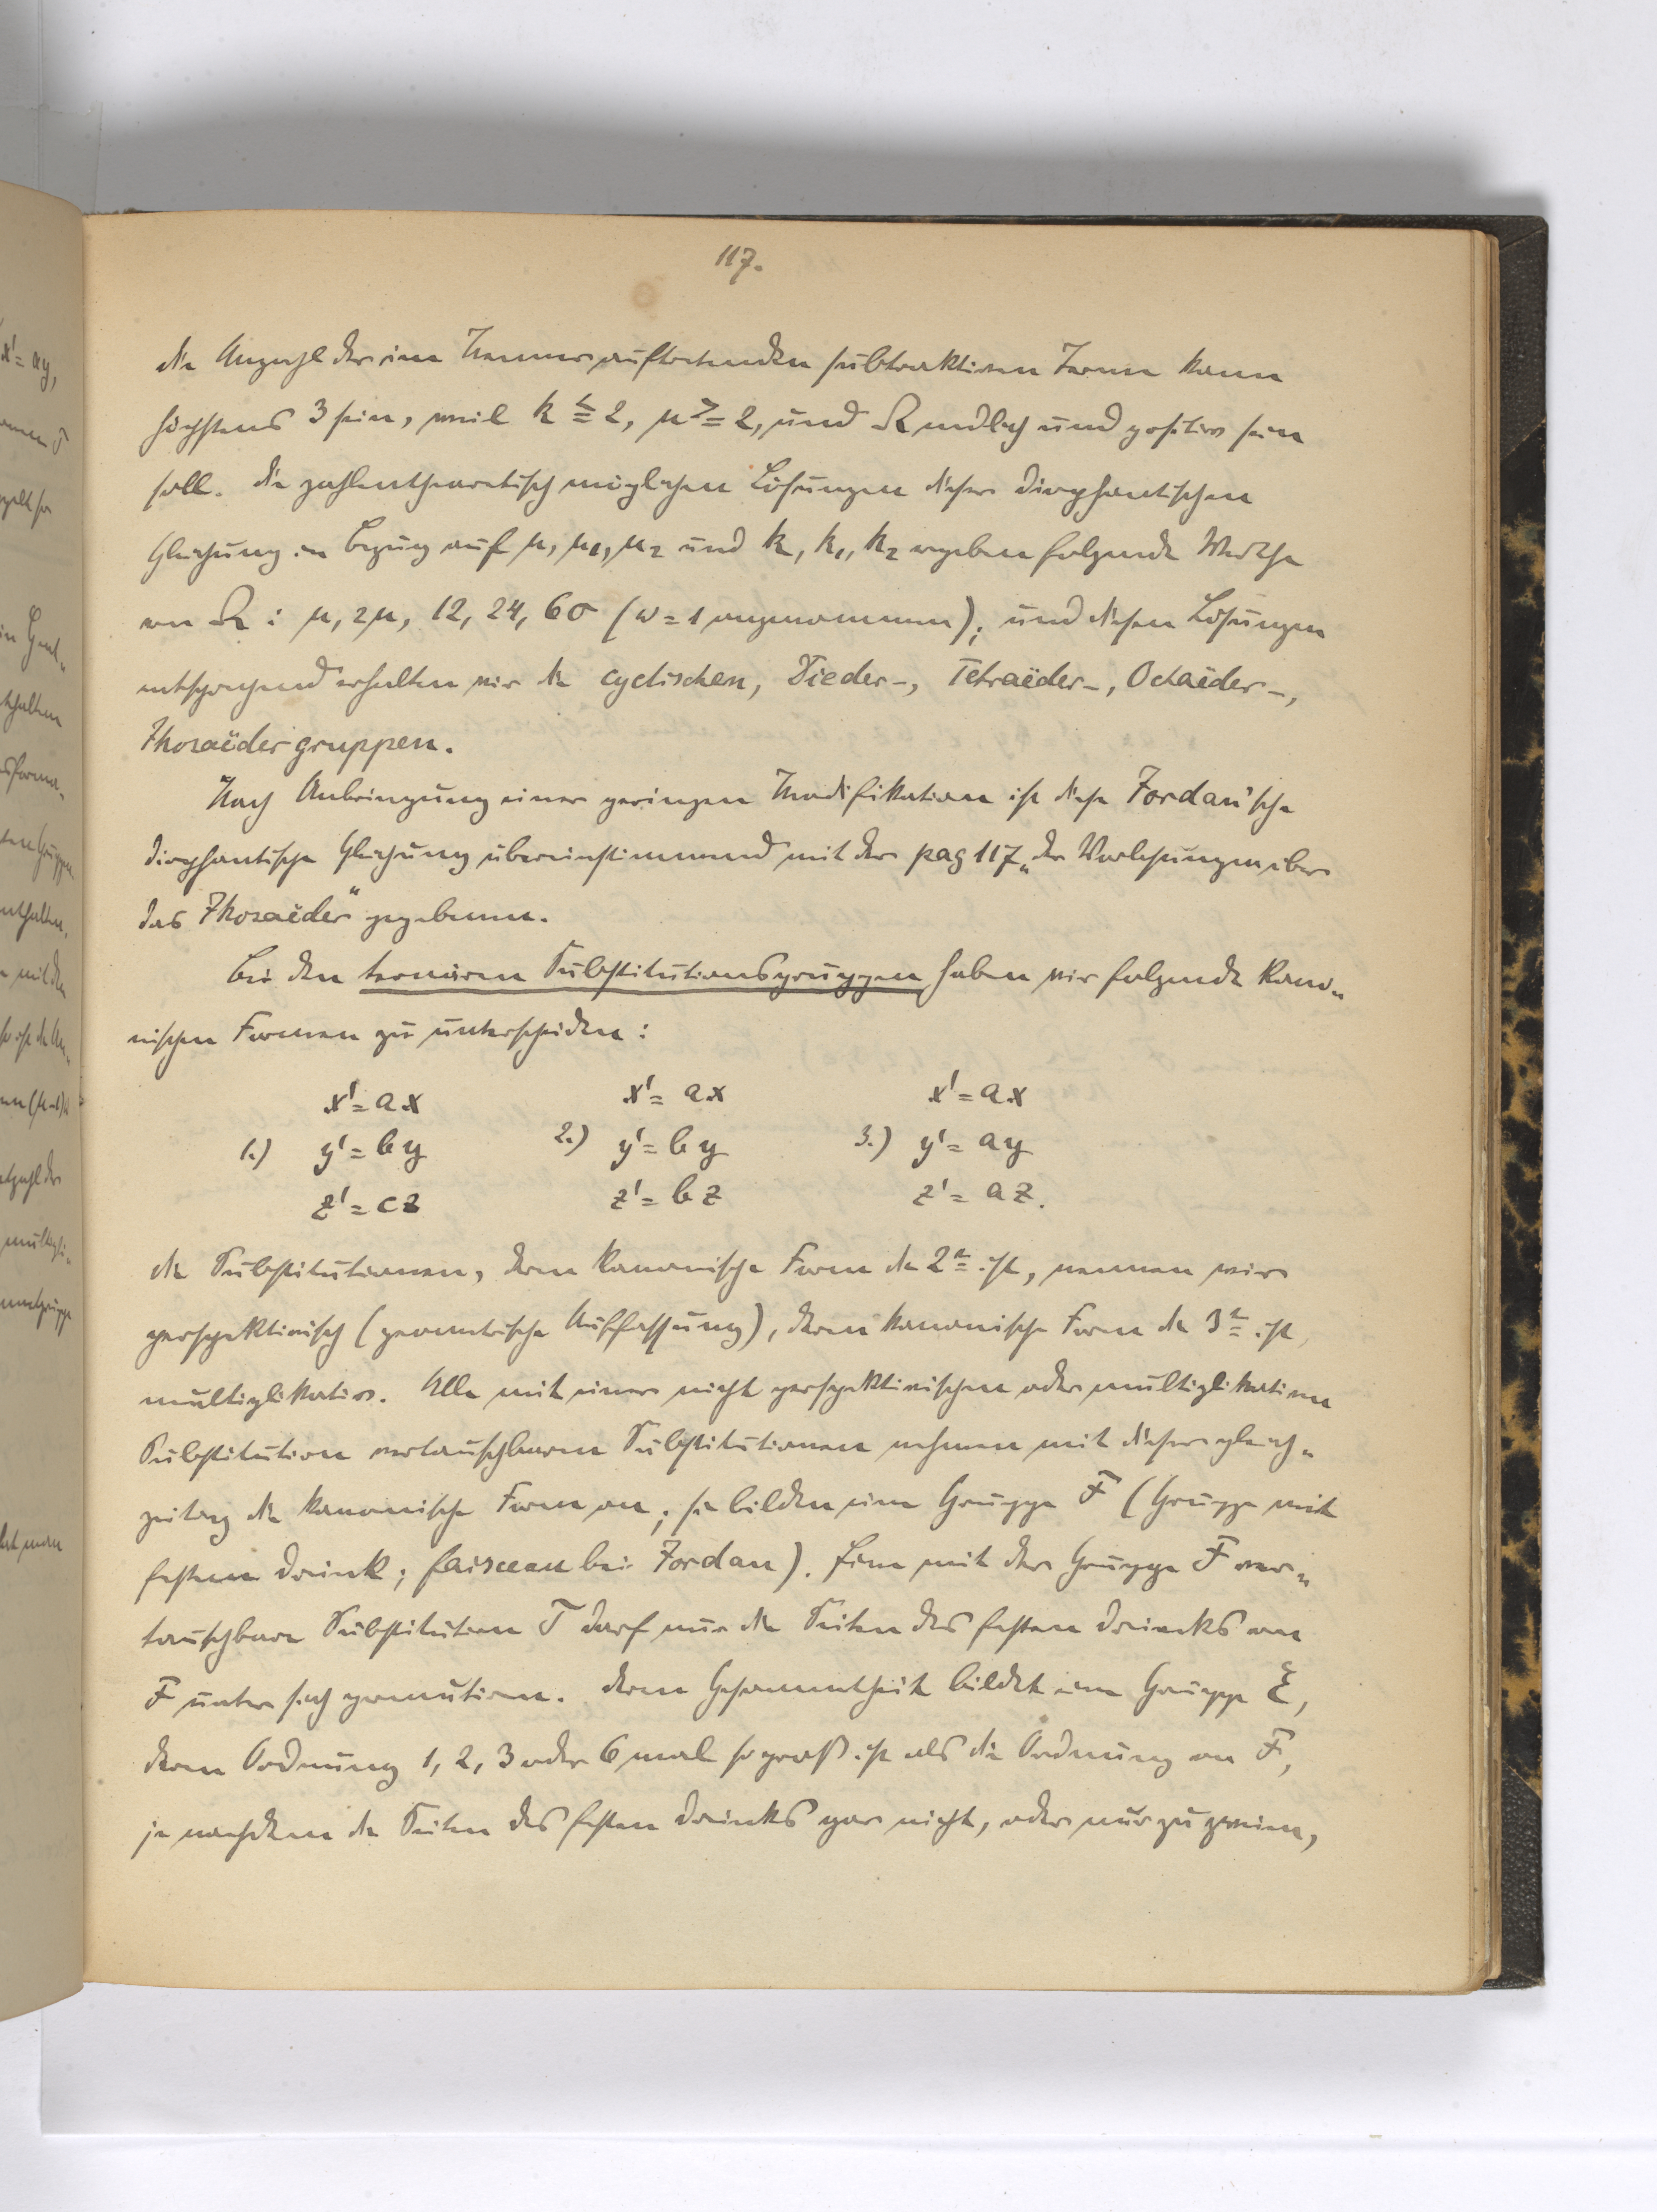 117.
die Anzahl der im Nenner auftretenden subtraktiven Terme kann
höchstens 3 sein, weil k ≦ 2, μ ≧ 2, und Ω endlich und positiv sein
soll. Die zahlentheoretisch möglichen Lösungen dieser diophantischen
Gleichung in Bezug auf μ, μ₁, μ₂ und k, k₁, k₂ ergeben folgende Werthe
von Ω : μ, 2μ, 12, 24, 60 (ω = 1 angenommen); und diesen Lösungen
entsprechend erhalten wir die cyclischen, Dieder-, Tetraëder-, Octaëder-,
Ikosaëdergruppen.
Nach Anbringung einer geringen Modifikation ist diese Jordan'sche
diophantische Gleichung übereinstimmend mit der pag 117 „der Vorlesungen über
das Ikosaëder" gegebenen.
Bei den ternären Substitutionsgruppen haben wir folgende kano-
nischen Formen zu unterscheiden:
x' = ax x' = ax x' = ax
1.) y' = by 2.) y' = by 3.) y' = ay
z' = cz z' = bz z' = az.
Die Substitutionen, deren kanonische Form die 2te ist, nennen wir
perspektivisch (geometrische Auffassung), deren kanonische Form die 3te ist,
multiplikativ. Alle mit einer nicht perspektivischen oder multiplikativen
Substitution vertauschbaren Substitutionen nehmen mit dieser gleich-
zeitig die kanonische Form an; sie bilden eine Gruppe F (Gruppe mit
festem Dreieck; faisceau bei Jordan). Eine mit der Gruppe F ver-
tauschbare Substitution T darf nur die Seiten des festen Dreiecks von
F unter sich permutiren. Deren Gesammtheit bildet eine Gruppe ξ,
deren Ordnung 1, 2, 3 oder 6 mal so groß ist als die Ordnung von F,
je nachdem die Seiten des festen Dreiecks gar nicht, oder nur zu zweien,